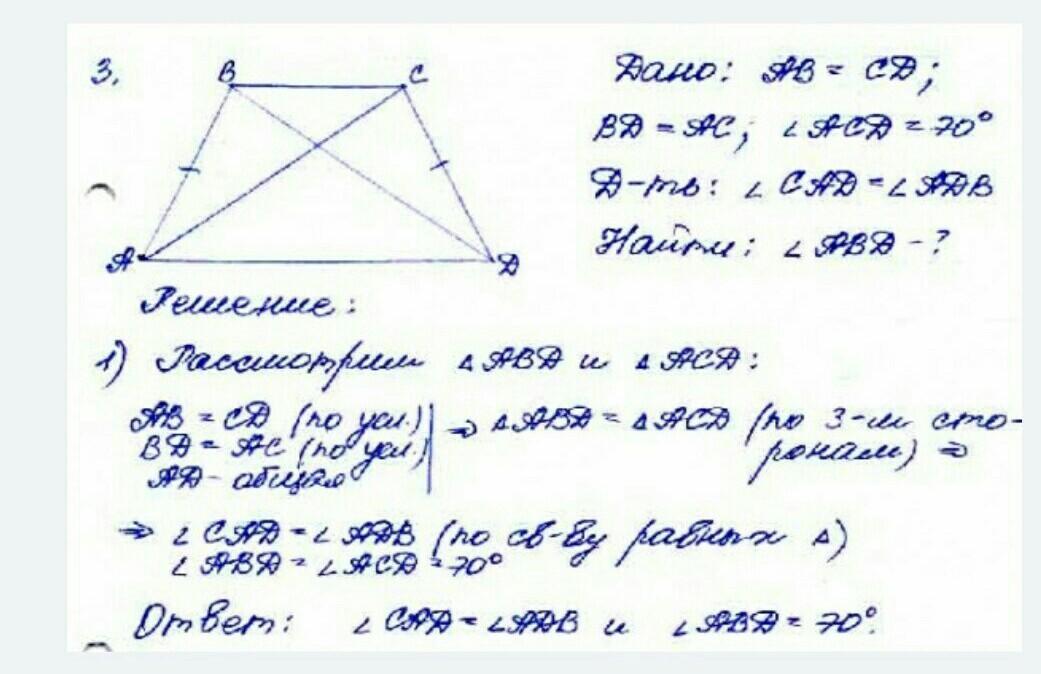 3.
B C
A D
Дано: AB = CD;
BD = AC; ∠ACD = 70°
Д-ть: ∠CAD = ∠ADB
Найти: ∠ABD - ?
Решение:
1) Рассмотрим △ABD и △ACD:
AB = CD (по усл.) | ⇒ △ABD = △ACD (по 3-м сто-
BD = AC (по усл.) | ронам) ⇒
AD - общая |
⇒ ∠CAD = ∠ADB (по св-ву равных △)
∠ABD = ∠ACD = 70°
Ответ: ∠CAD = ∠ADB и ∠ABD = 70°.